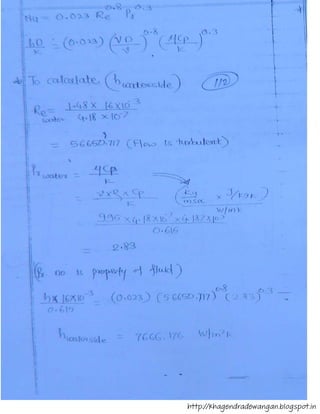 Nu = 0.023 Re^0.8 Pr^0.3
hD/K = (0.023) (VD/ν)^0.8 (ηCp/K)^0.3
To calculate (h waterside) (112)
Re water = 1.48 × 16×10^-3 / 4.18 × 10^-7
= 56650.717 (Flow is turbulent)
Pr water = ηCp/K
= ν×ρ×Cp/K (Kg/m sec × J/Kg K / W/mK)
995 × 4.18×10^-7 × 4.182×10^3 / 0.615
= 2.83
(Pr no is property of fluid)
h × 16×10^-3 / 0.615 = (0.023) (56650.717)^0.8 (2.83)^0.3
h waterside = 7666.176 W/m²K
http://khagendradewangan.blogspot.in